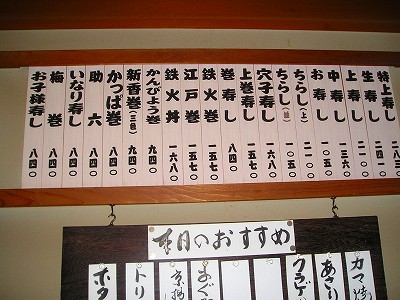 特上寿し 二八三
生寿し 二四一
上寿し 一三六
中寿し
お寿し 二一〇
ちらし(上)
ちらし 一〇五
穴子寿し 一六八
上巻寿し 一五七
巻寿し 八四〇
鉄火巻 一五七
江戸巻 一五七
鉄火丼 一六八〇
かんぴょう巻 八四〇
新香巻(三色) 九四〇
かっぱ巻 九四〇
助六 八四〇
いなり寿し 八四〇
梅巻 八四〇
お子様寿し 八四〇
本日のおすすめ
カマ焼
あさり
クラゲ
まぐ
トリ
ホタ